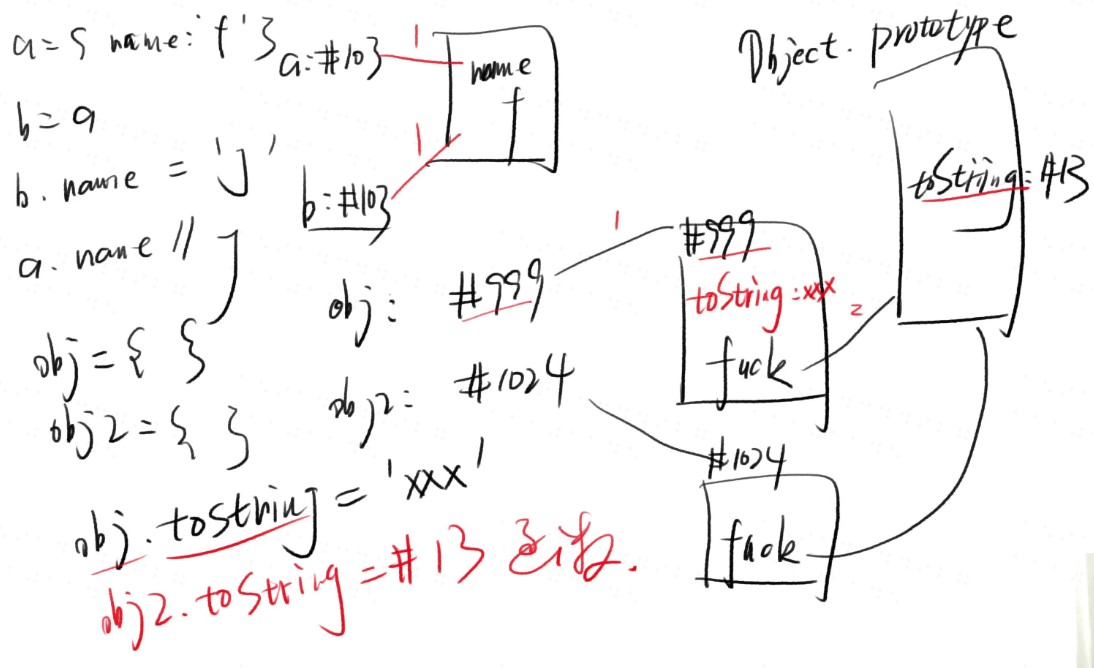 a={ name: 'f'}
b=a
b. name = 'J'
a. name // J
obj={ }
obj2={ }
obj.tostring = 'xxx'
obj2.toString = #13 函数.
a:#103
name
f
b:#103
obj: #999
obj2: #1024
1
1
1
#999
toString:xxx
fuck
2
#1024
fuck
Object. prototype
toString: #13